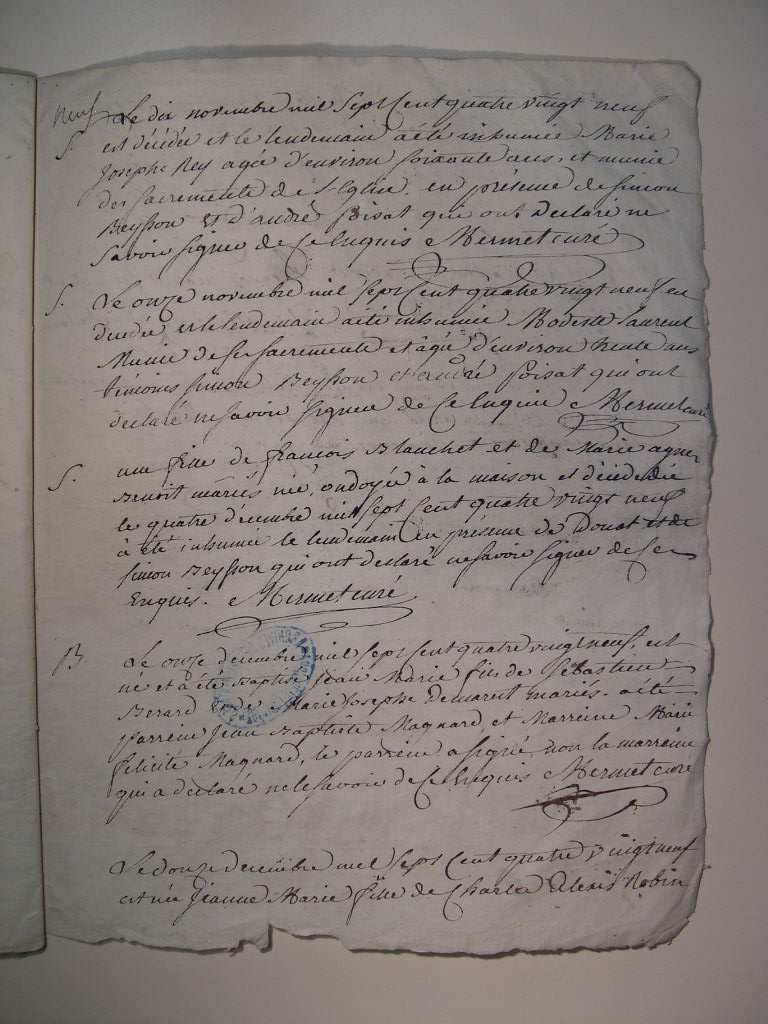 neuf
S. Le dix novembre mil sept Cent quatre vingt neuf
est décédée et le lendemain a été inhumée Marie
Josephe Rey agée d'environ soixante ans, et munie
des sacremente de St Eglise. en présence de Simon
Beysson et d'andré Poisat qui ont Declaré ne
Savoir Signer de Ce Enquis Mermet curé
S. Le onze novembre mil sept Cent quatre vingt neuf est
décédée et le lendemain a été inhumée Modeste Laurent
Munie de se sacremente et agée d'environ trente ans
témoins Simon Beysson et andré Poisat qui ont
declaré ne Savoir Signer de Ce Enquis Mermet curé
S. une fille de françois Blanchet et de Marie agnes
Benoit mâriés née, ondoyée à la maison et décédée
le quatre d'écembre mil sept Cent quatre vingt neuf
à été inhumée le lendemain en présence de Donat et de
Simon Beysson qui ont declaré ne Savoir Signer de Ce
Enquis. Mermet curé
B Le onze decembre mil sept Cent quatre vingt neuf, est
né et a été Baptisé Jean Marie fils de Sébastien
Berard et de Marie Josephe Demarest mariés. a été
parrein Jean Baptiste Magnard et Marreine Marie
félicité Magnard, le parrein a signé, non la marreine
qui a declaré ne le Savoir de Ce Enquis Mermet curé
Le douze decembre mil sept Cent quatre vingt neuf
est née Jeanne Marie fille de Charle Alexis Robin